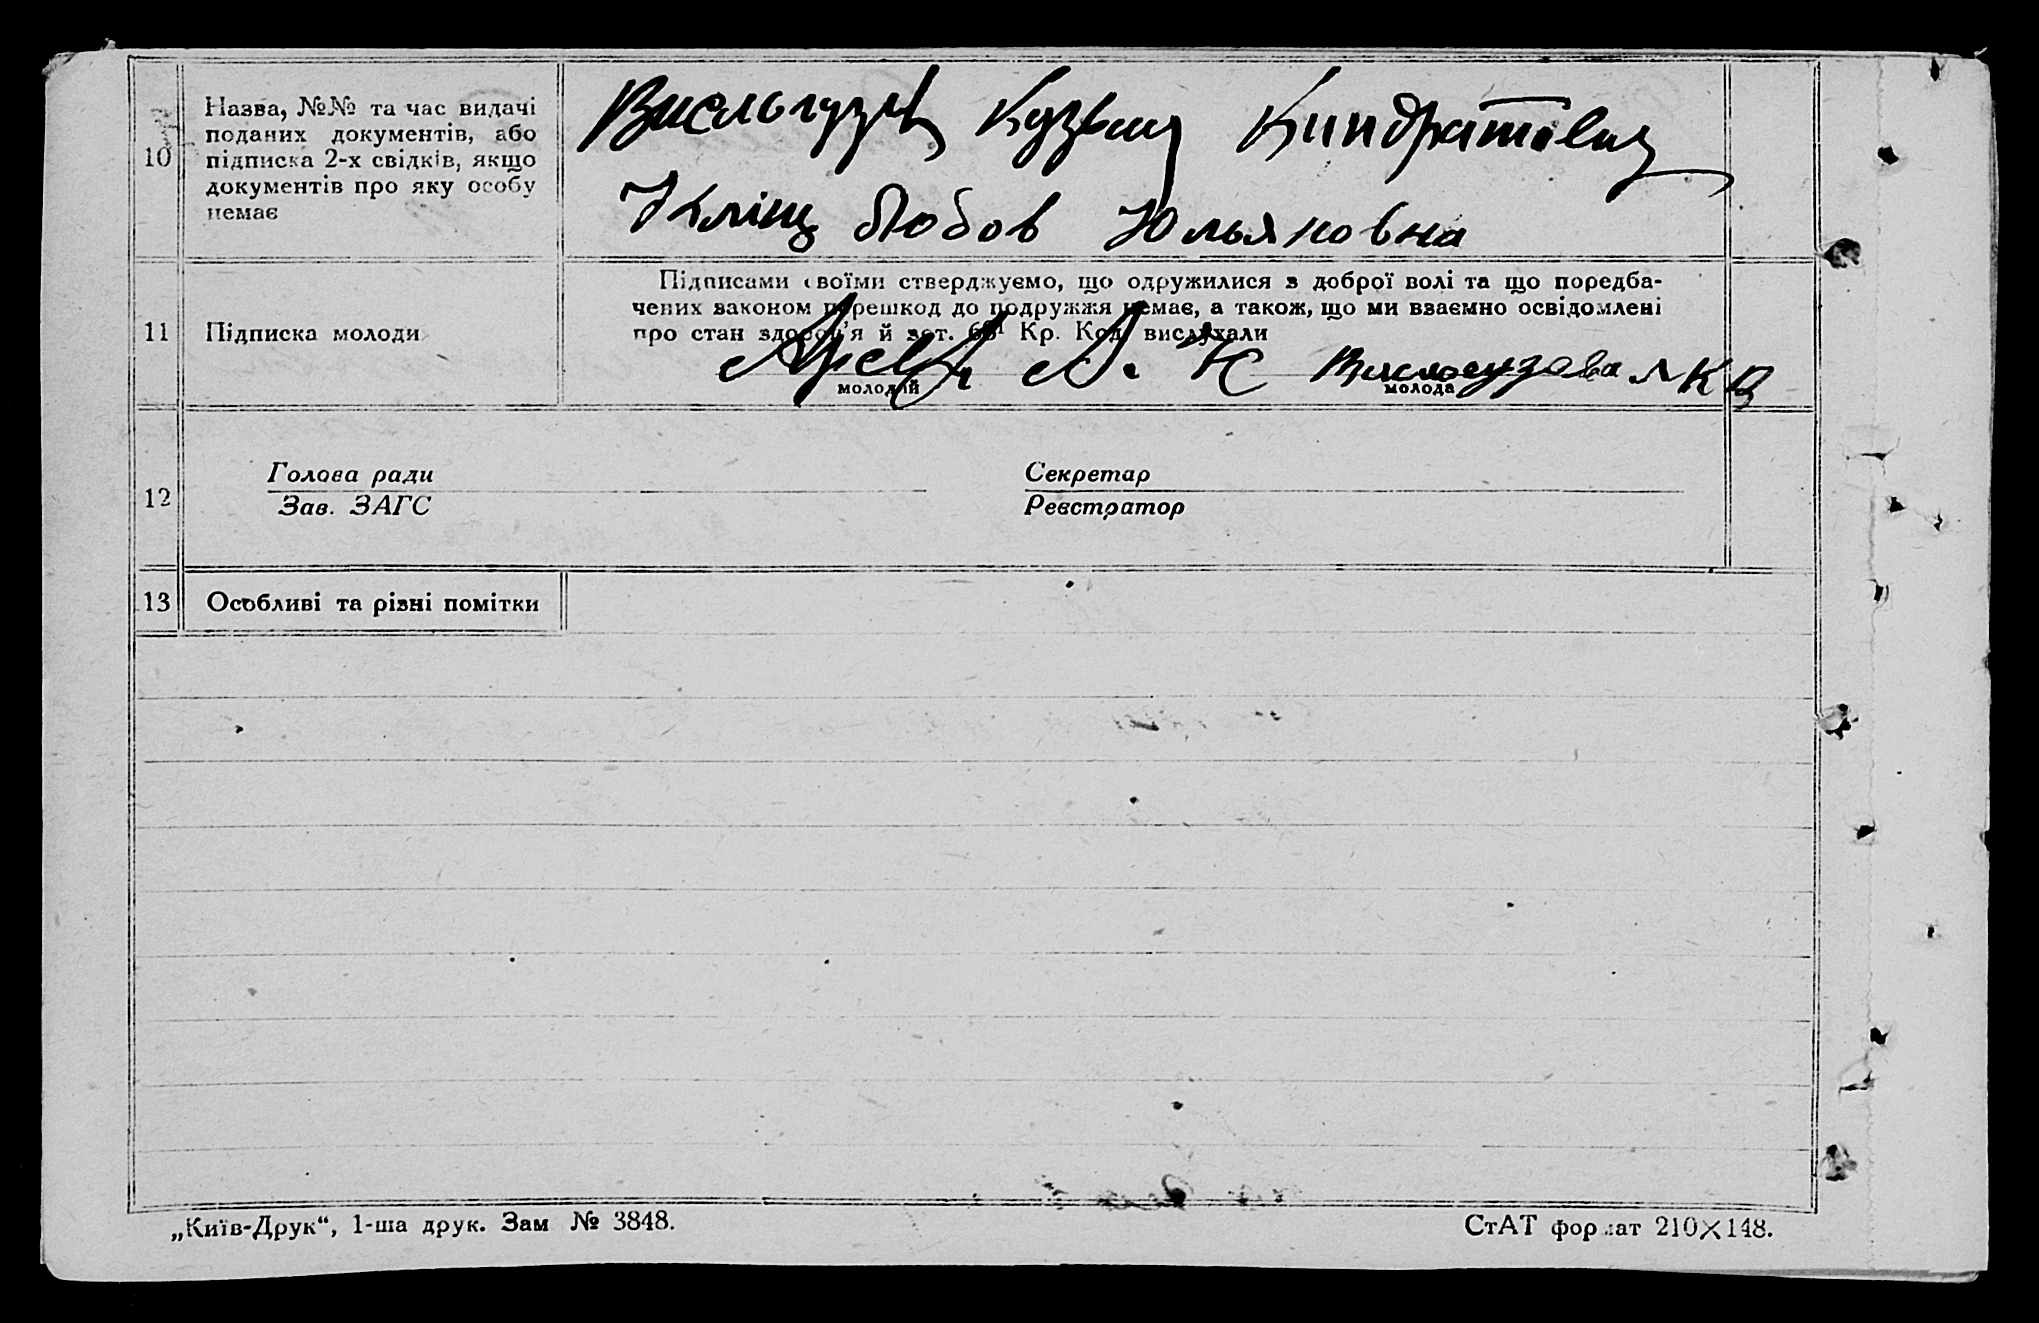 10
Назва, №№ та час видачі
поданих документів, або
підписка 2-х свідків, якщо
документів про яку особу
немає
Вислогузов Кузьма Киндратович
Кліщ Любов Юльяновна
11
Підписка молоди
Підписами своїми стверджуємо, що одружилися з доброї волі та що поредба-
чених законом перешкод до подружжя немає, а також, що ми взаємно освідомлені
про стан здоров'я й зст. Кр. Код. вислухали
А. К Вислогузова
молодий молода
12
Голова ради
Зав. ЗАГС
Секретар
Реєстратор
13
Особливі та різні помітки
„Київ-Друк“, 1-ша друк. Зам № 3848.
СтАТ формат 210×148.